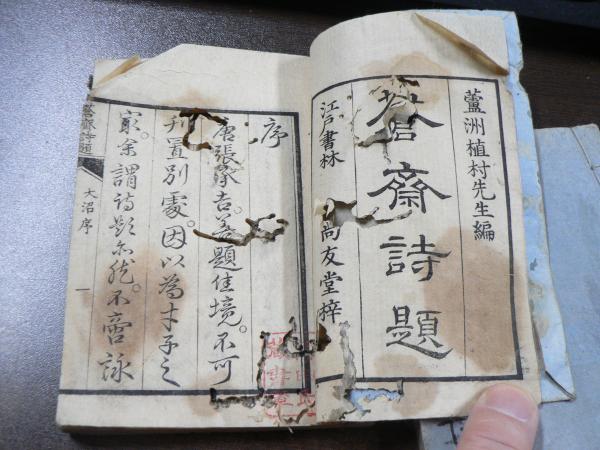 蘆洲植村先生編
齋詩題
江戸書林 尚友堂梓
序
唐張承吉善題佳境。不可
刊置別處。因以為才子之
最。余謂詩題亦然。不啻詠
齋詩題 大沼序 一